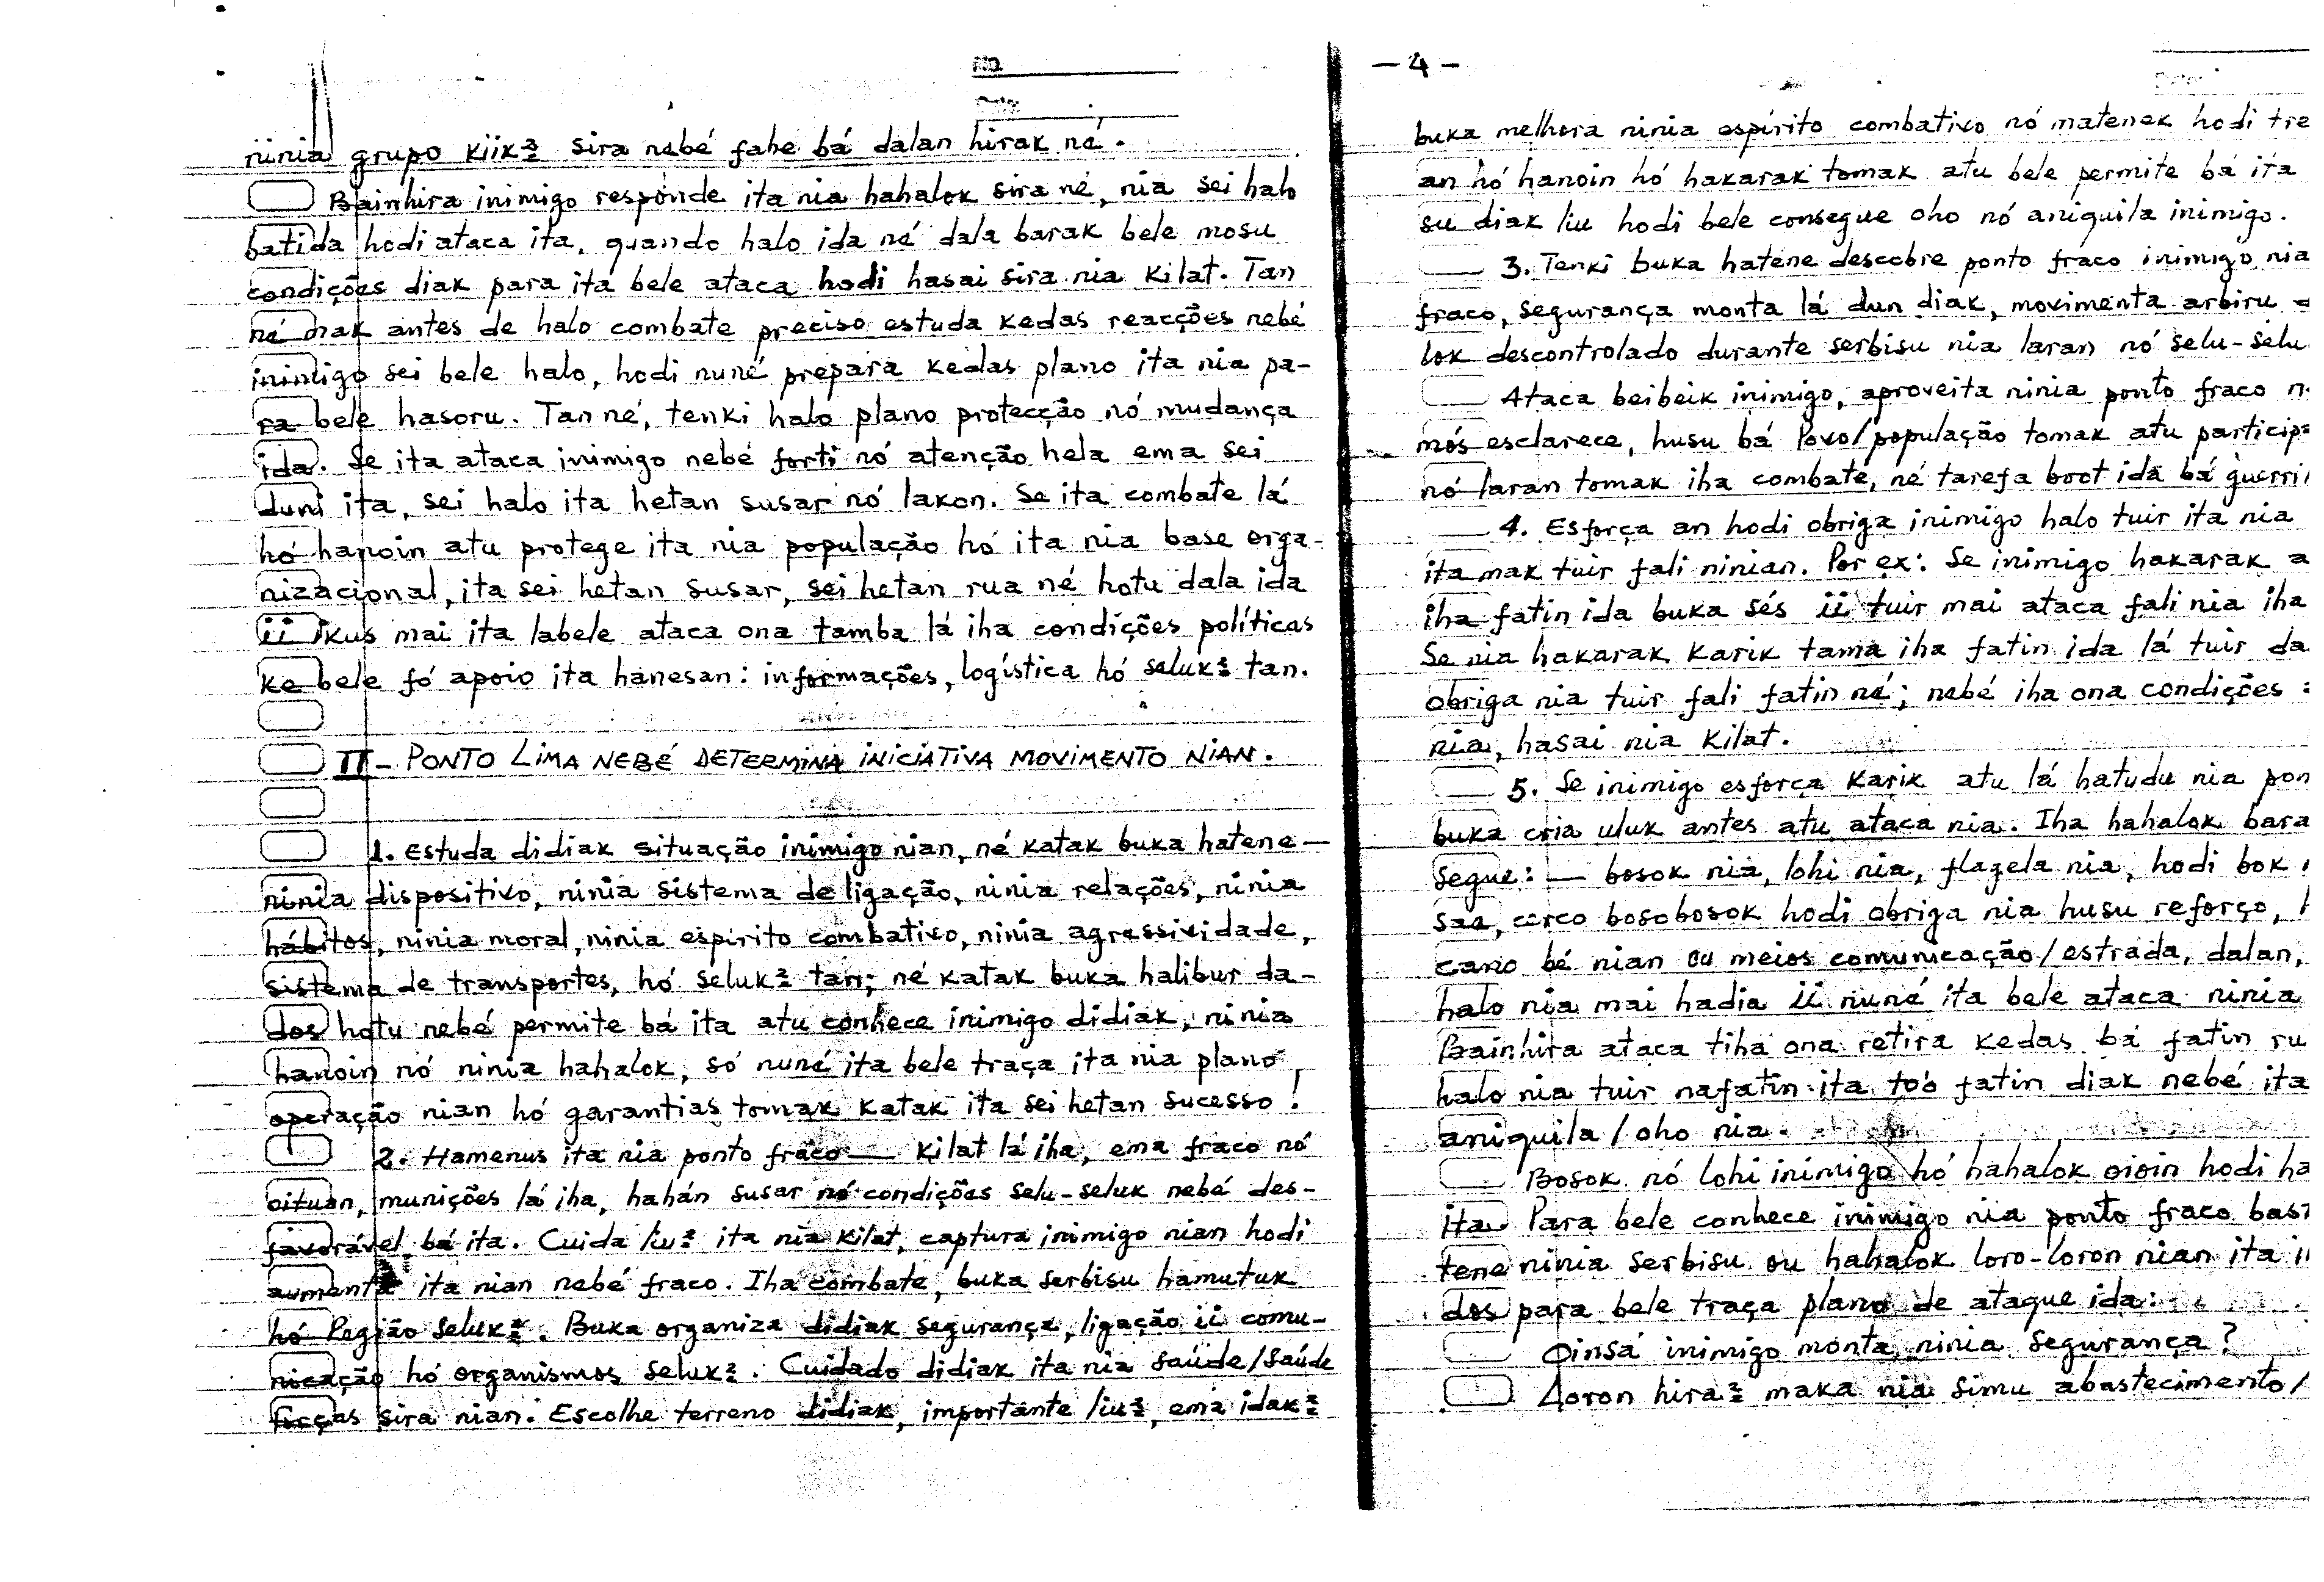 No.
Date
ninia grupo kiik² sira nebé fahe bá dalan hirak né.
Bainhira inimigo responde ita nia hahalok sira né, nia sei halo
batida hodi ataca ita, quando halo ida né dala barak bele mosu
condições diak para ita bele ataca hodi hasai sira nia kilat. Tan
né mak antes de halo combate preciso estuda kedas reacções nebé
inimigo sei bele halo, hodi nuné prepara kedas plano ita nia pa-
ra bele hasoru. Tan né, tenki halo plano protecção nó mudança
ida. Se ita ataca inimigo nebé forti nó atenção hela ema sei
duni ita, sei halo ita hetan susar nó lakon. Se ita combate lá
hó hanoin atu protege ita nia população hó ita nia base orga-
nizacional, ita sei hetan susar, sei hetan rua né hotu dala ida
ii ikus mai ita labele ataca ona tamba lá iha condições políticas
ke bele fó apoio ita hanesan: informações, logística hó seluk² tan.
II - PONTO LIMA NEBÉ DETERMINA INICIATIVA MOVIMENTO NIAN.
1. Estuda didiak situação inimigo nian, né katak buka hatene —
ninia dispositivo, ninia sistema de ligação, ninia relações, ninia
hábitos, ninia moral, ninia espírito combativo, ninia agressividade,
sistema de transportes, hó seluk² tan; né katak buka halibur da-
dos hotu nebé permite bá ita atu conhece inimigo didiak, ninia
hanoin nó ninia hahalok, só nuné ita bele traça ita nia plano
operação nian hó garantias tomak katak ita sei hetan sucesso!
2. Hamenus ita nia ponto fraco — kilat lá iha, ema fraco nó
oituan, munições lá iha, hahán susar nó condições selu-seluk nebé des-
favorável bá ita. Cuida liu² ita nia kilat, captura inimigo nian hodi
aumenta ita nian nebé fraco. Iha combate, buka serbisu hamutuk
hó Região seluk². Buka organiza didiak segurança, ligação ii comu-
nicação hó organismos seluk². Cuidado didiak ita nia saúde/saúde
forças sira nian. Escolhe terreno didiak, importante liu², ema idak²
- 4 -
buka melhora ninia espírito combativo nó matenek hodi tre
an hó hanoin hó hakarak tomak atu bele permite bá ita
su diak liu hodi bele consegue oho nó aniquila inimigo.
3. Tenki buka hatene descobre ponto fraco inimigo nia
fraco, segurança monta lá dun diak, movimenta arbiru
lok descontrolado durante serbisu nia laran nó selu-selu
Ataca beibeik inimigo, aproveita ninia ponto fraco
mós esclarece, husu bá Povo/população tomak atu particip
nó laran tomak iha combate, né tarefa boot ida bá guerri
4. Esforça an hodi obriga inimigo halo tuir ita nia
ita mak tuir fali ninian. Por ex: Se inimigo hakarak a
iha fatin ida buka sés ii tuir mai ataca fali nia iha
Se nia hakarak karik tama iha fatin ida lá tuir da
obriga nia tuir fali fatin né; nebé iha ona condições
nia, hasai nia kilat.
5. Se inimigo esforça karik atu lá hatudu nia pon
buka cria uluk antes atu ataca nia. Iha hahalok bara
segue: — bosok nia, lohi nia, flagela nia, hodi bok
saa, cerco bosobosok hodi obriga nia husu reforço, h
cano bé nian ou meios comunicação/estrada, dalan,
halo nia mai hadia ii nuné ita bele ataca ninia
Bainhira ataca tiha ona retira kedas bá fatin ru
halo nia tuir nafatin ita to'o fatin diak nebé ita
aniquila/oho nia.
Bosok nó lohi inimigo hó hahalok oioin hodi ha
ita. Para bele conhece inimigo nia ponto fraco bas
tene ninia serbisu ou hahalok loro-loron nian ita
dos para bele traça plano de ataque ida:
Oinsá inimigo monta ninia segurança?
Loron hira² maka nia simu abastecimento/